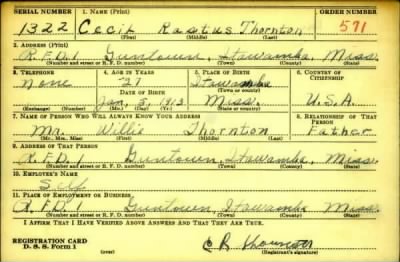 SERIAL NUMBER 1. NAME (Print) ORDER NUMBER
1322 Cecil Rastus Thornton 571
(First) (Middle) (Last)
2. ADDRESS (Print)
R.F.D.1 Guntown, Itawamba, Miss.
(Number and street or R. F. D. number) (Town) (County) (State)
3. TELEPHONE 4. AGE IN YEARS 5. PLACE OF BIRTH 6. COUNTRY OF CITIZENSHIP
None 27 Itawamba
DATE OF BIRTH (Town or county)
Jan. 5, 1913 Miss. U.S.A.
(Exchange) (Number) (Mo.) (Day) (Yr.) (State or country)
7. NAME OF PERSON WHO WILL ALWAYS KNOW YOUR ADDRESS 8. RELATIONSHIP OF THAT PERSON
Mr. Willie Thornton Father
(Mr., Mrs., Miss) (First) (Middle) (Last)
9. ADDRESS OF THAT PERSON
R.F.D.1 Guntown, Itawamba, Miss.
(Number and street or R. F. D. number) (Town) (County) (State)
10. EMPLOYER'S NAME
11. PLACE OF EMPLOYMENT OR BUSINESS
R.F.D.1 Guntown, Itawamba Miss.
(Number and street or R. F. D. number) (Town) (County) (State)
I AFFIRM THAT I HAVE VERIFIED ABOVE ANSWERS AND THAT THEY ARE TRUE.
REGISTRATION CARD
D. S. S. Form 1 (over) C R Thornton
(Registrant's signature)